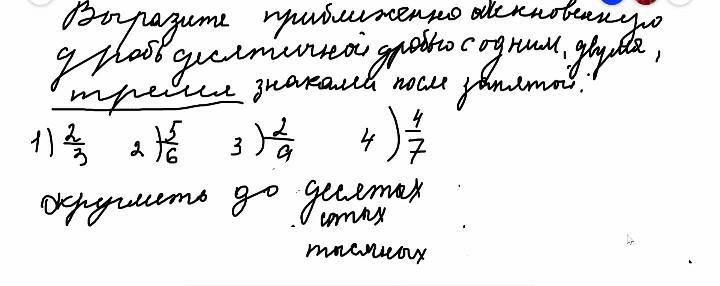 Выразите приближенно обыкновенную
дробь десятичной дробью с одним, двумя,
тремя знаками после запятой:
1) 2/3 2) 5/6 3) 2/9 4) 4/7
округлить до десятых
сотых
тысячных